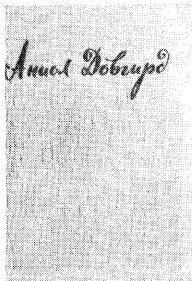 Аниол Довгирд